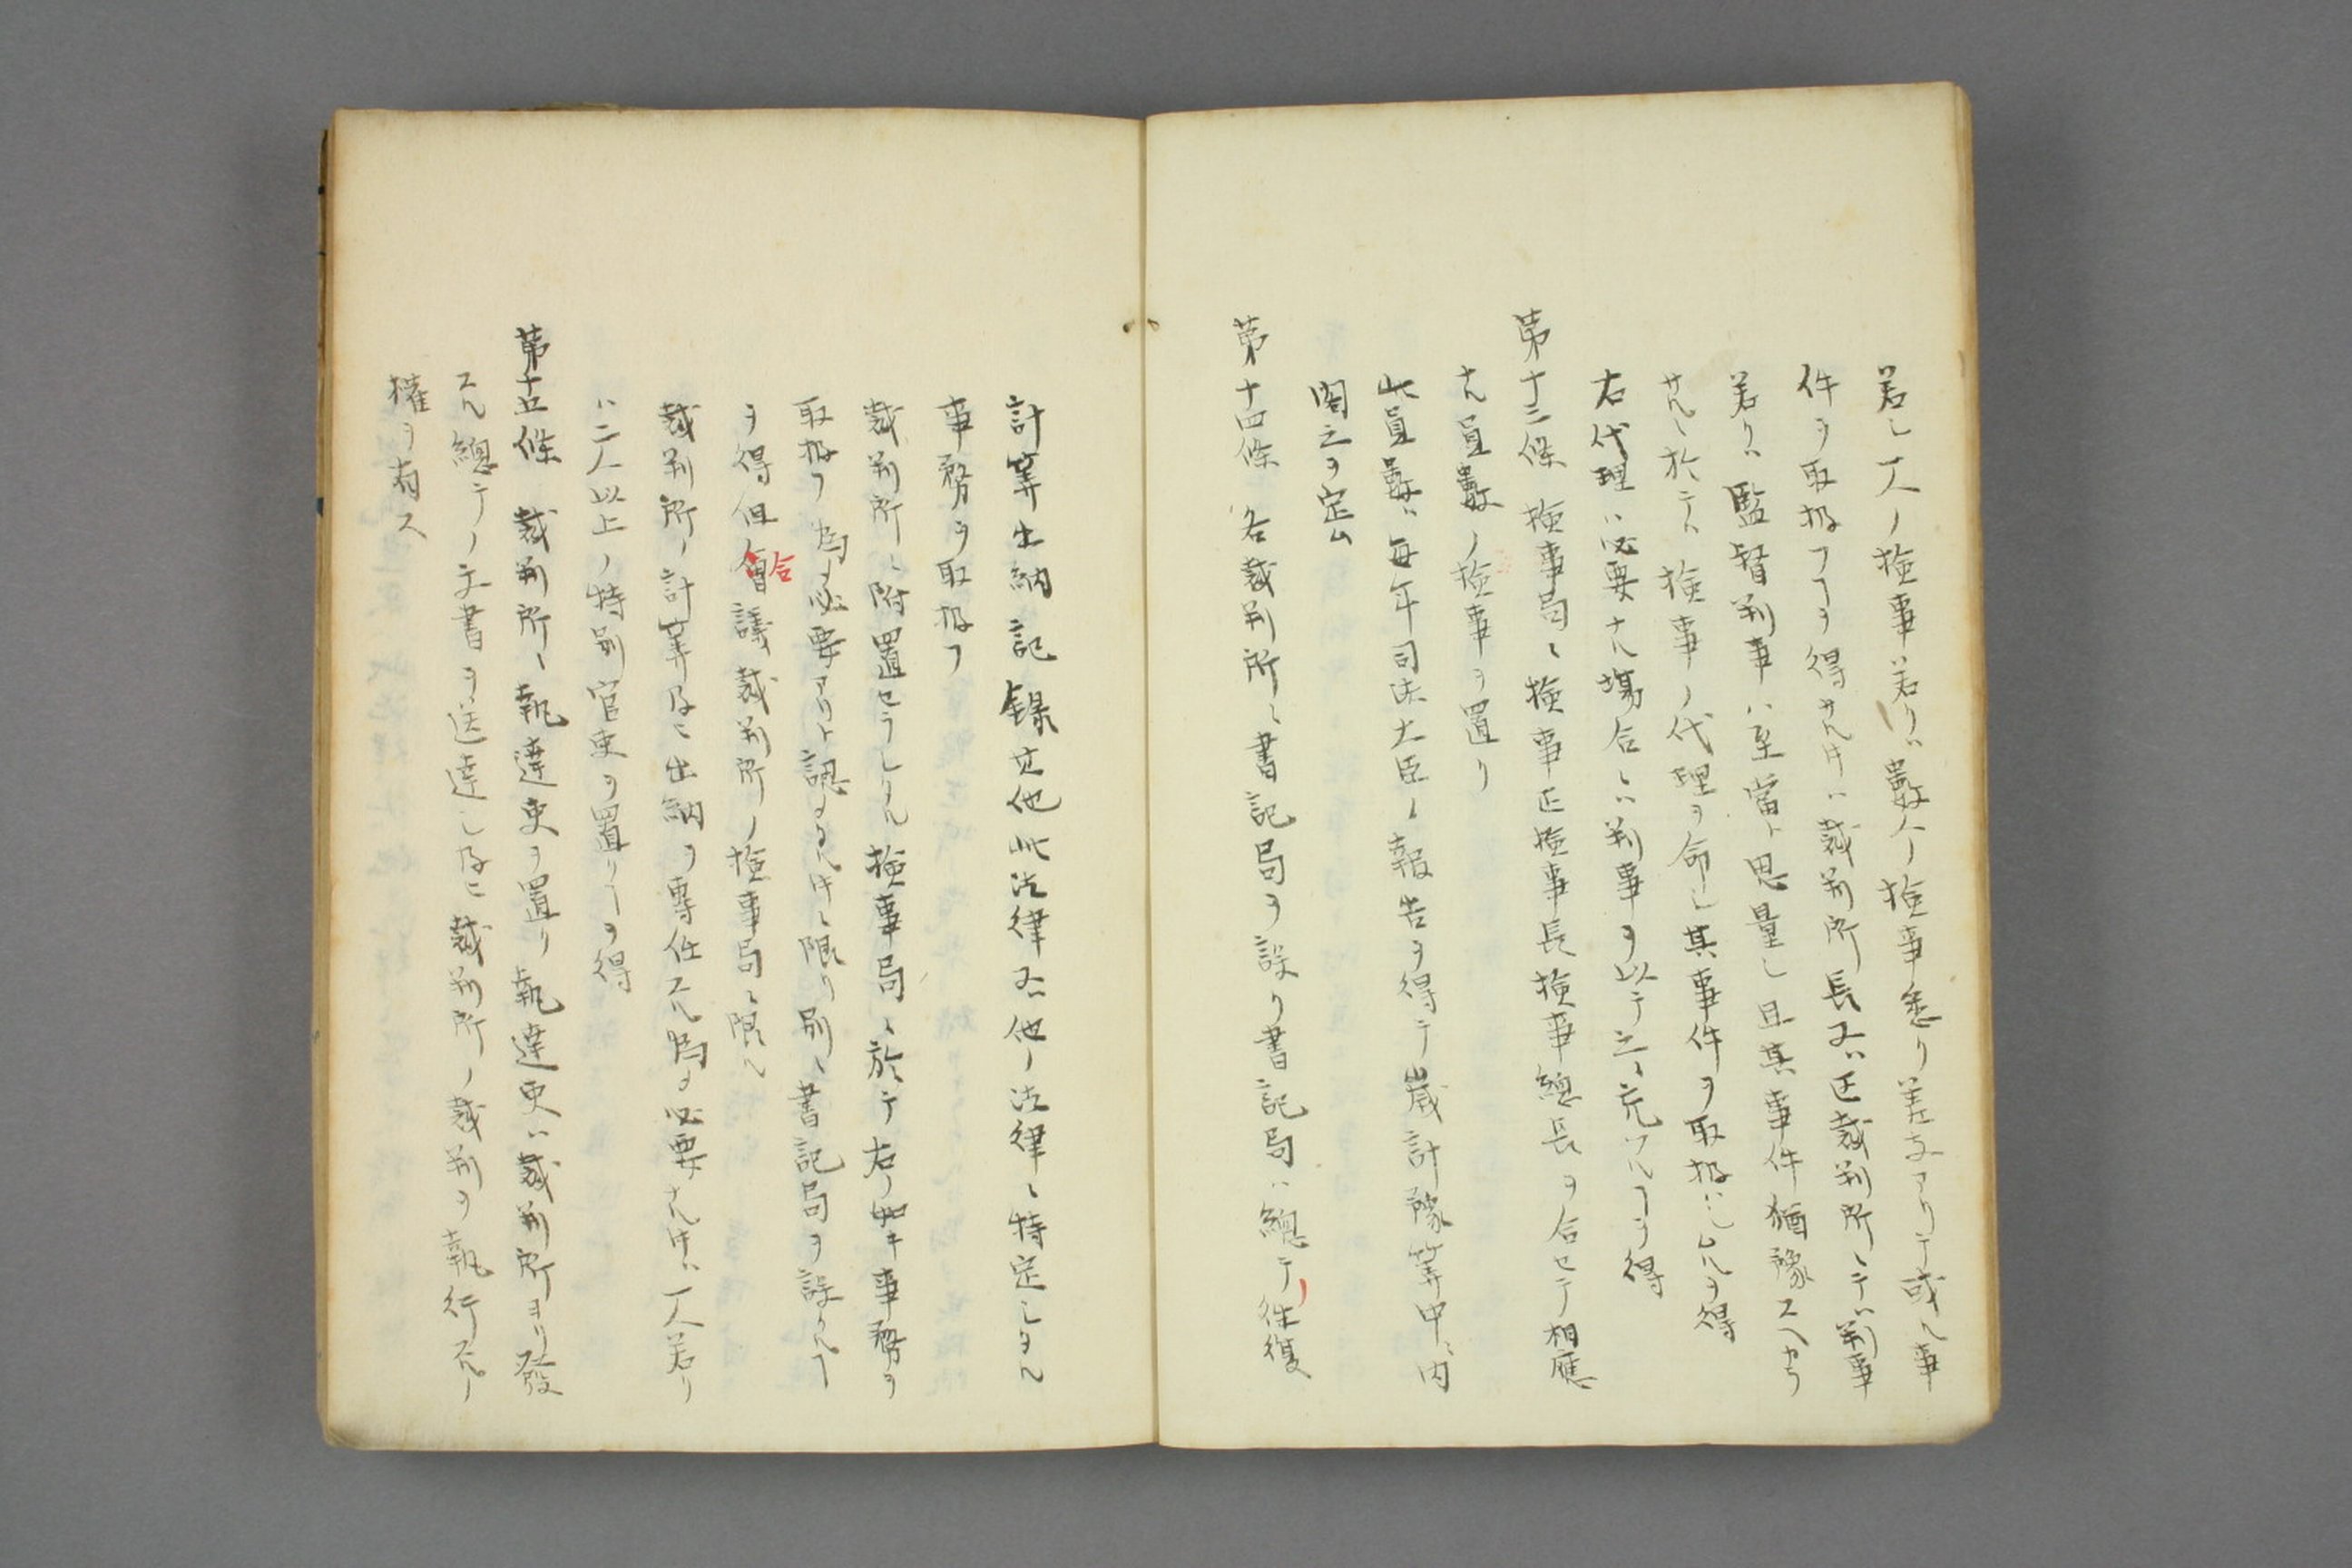 若シ一人ノ検事若クハ數人ノ検事悉ク差支アリテ或ル事
件ヲ取扱フヿヲ得サル𪜈ハ裁判所長又ハ区裁判所ニテハ判事
若クハ監督判事ハ至當ト思量シ且其事件猶豫スヘカラ
サルニ於テハ検事ノ代理ヲ命シ其事件ヲ取扱ハシムルヲ得
右代理ハ必要ナル塲合ニハ判事ヲ以テ之ニ充ツルヿヲ得
第十三條 検事局ニ検事正検事長検事總長ヲ合セテ相應
ナル員數ノ検事ヲ置ク
此員數ハ毎年司法大臣ノ報告ヲ得テ歳計豫筭中ニ内
閣之ヲ定ム
第十四條 各裁判所ニ書記局ヲ設ク書記局ハ總テ往復
計筭出納記録其他此法律又ハ他ノ法律ニ特定シタル
事務ヲ取扱フ
裁判所ニ附置セラレタル検事局ニ於テ右ノ如キ事務ヲ
取扱フ為メ必要アリト認ムル𪜈ニ限リ別ニ書記局ヲ設クルヿ
ヲ得但會合議裁判所ノ検事局ニ限ル
裁判所ノ計筭及ヒ出納ヲ専任スル為メ必要ナル𪜈ハ一人若ク
ハ二人以上ノ特別官吏ヲ置クヿヲ得
第十五條 裁判所ニ執達吏ヲ置ク執達吏ハ裁判所ヨリ發
スル總テノ文書ヲ送達シ及ヒ裁判所ノ裁判ヲ執行スルノ
權ヲ有ス